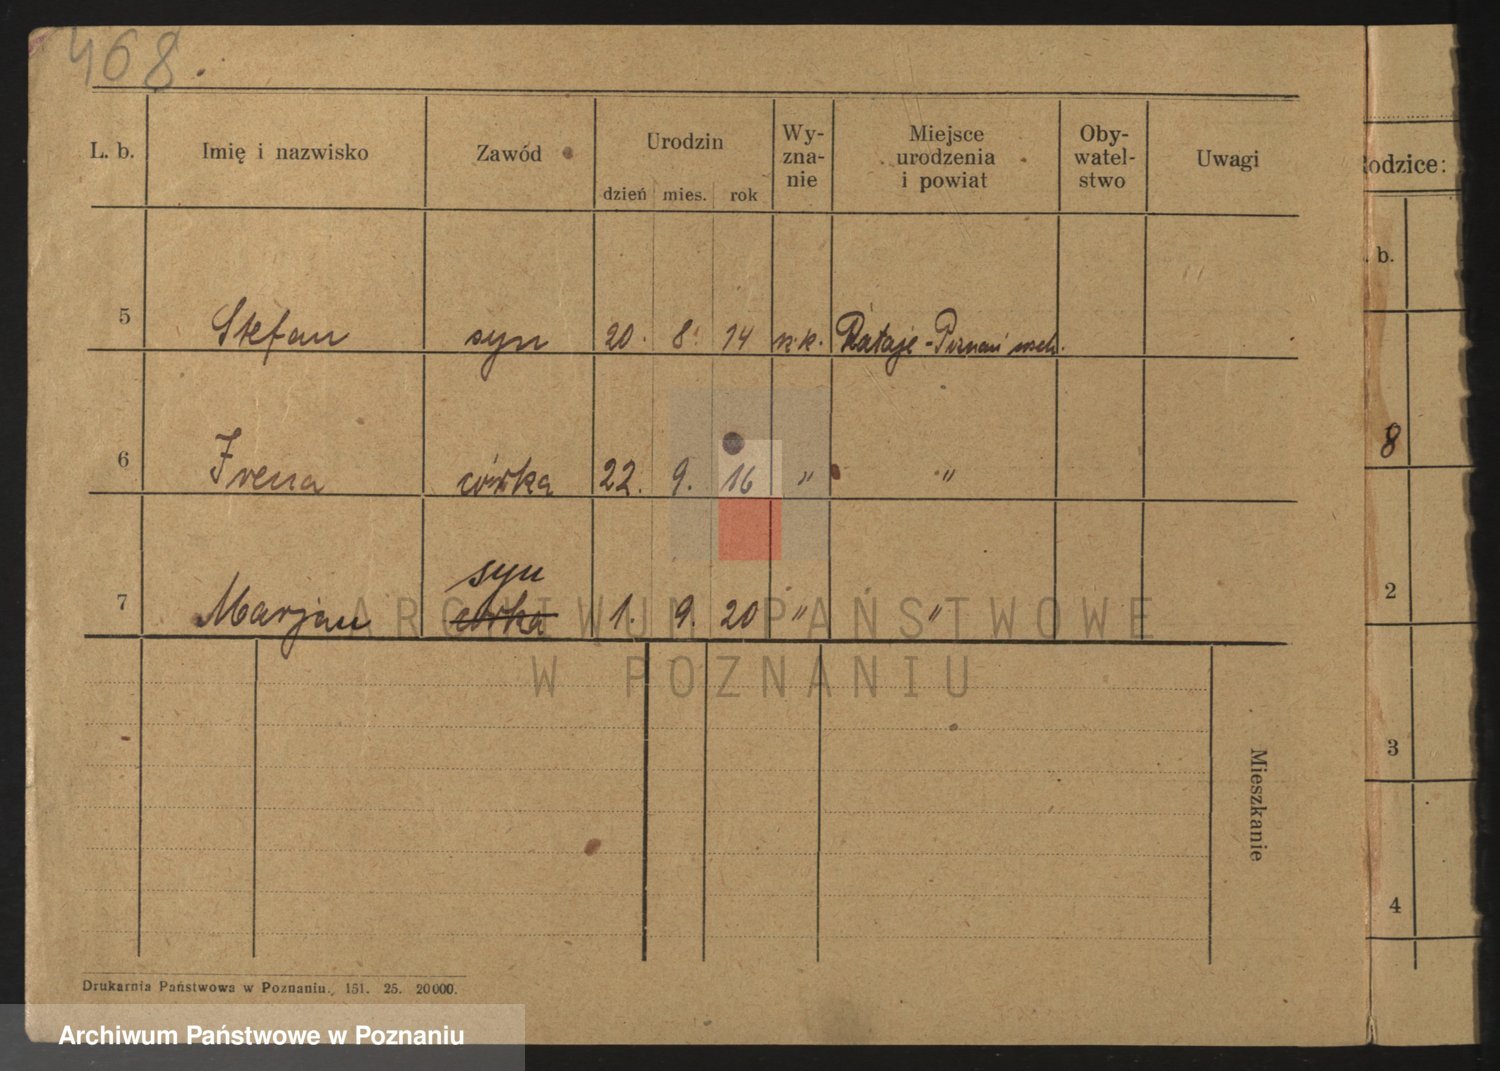 468.
L. b. Imię i nazwisko Zawód Urodzin Wy-zna-nie Miejsce urodzenia i powiat Oby-watel-stwo Uwagi
dzień mies. rok
5 Stefan syn 20. 8. 14 rz.k. Rataje - Poznań wsch.
6 Irena córka 22. 9. 16 " "
syn
7 Marjan córka 1. 9. 20 " "
Mieszkanie
Drukarnia Państwowa w Poznaniu. 151. 25. 20000.
Rodzice:
b.
8
2
3
4
ARCHIWUM PAŃSTWOWE
W POZNANIU
Archiwum Państwowe w Poznaniu